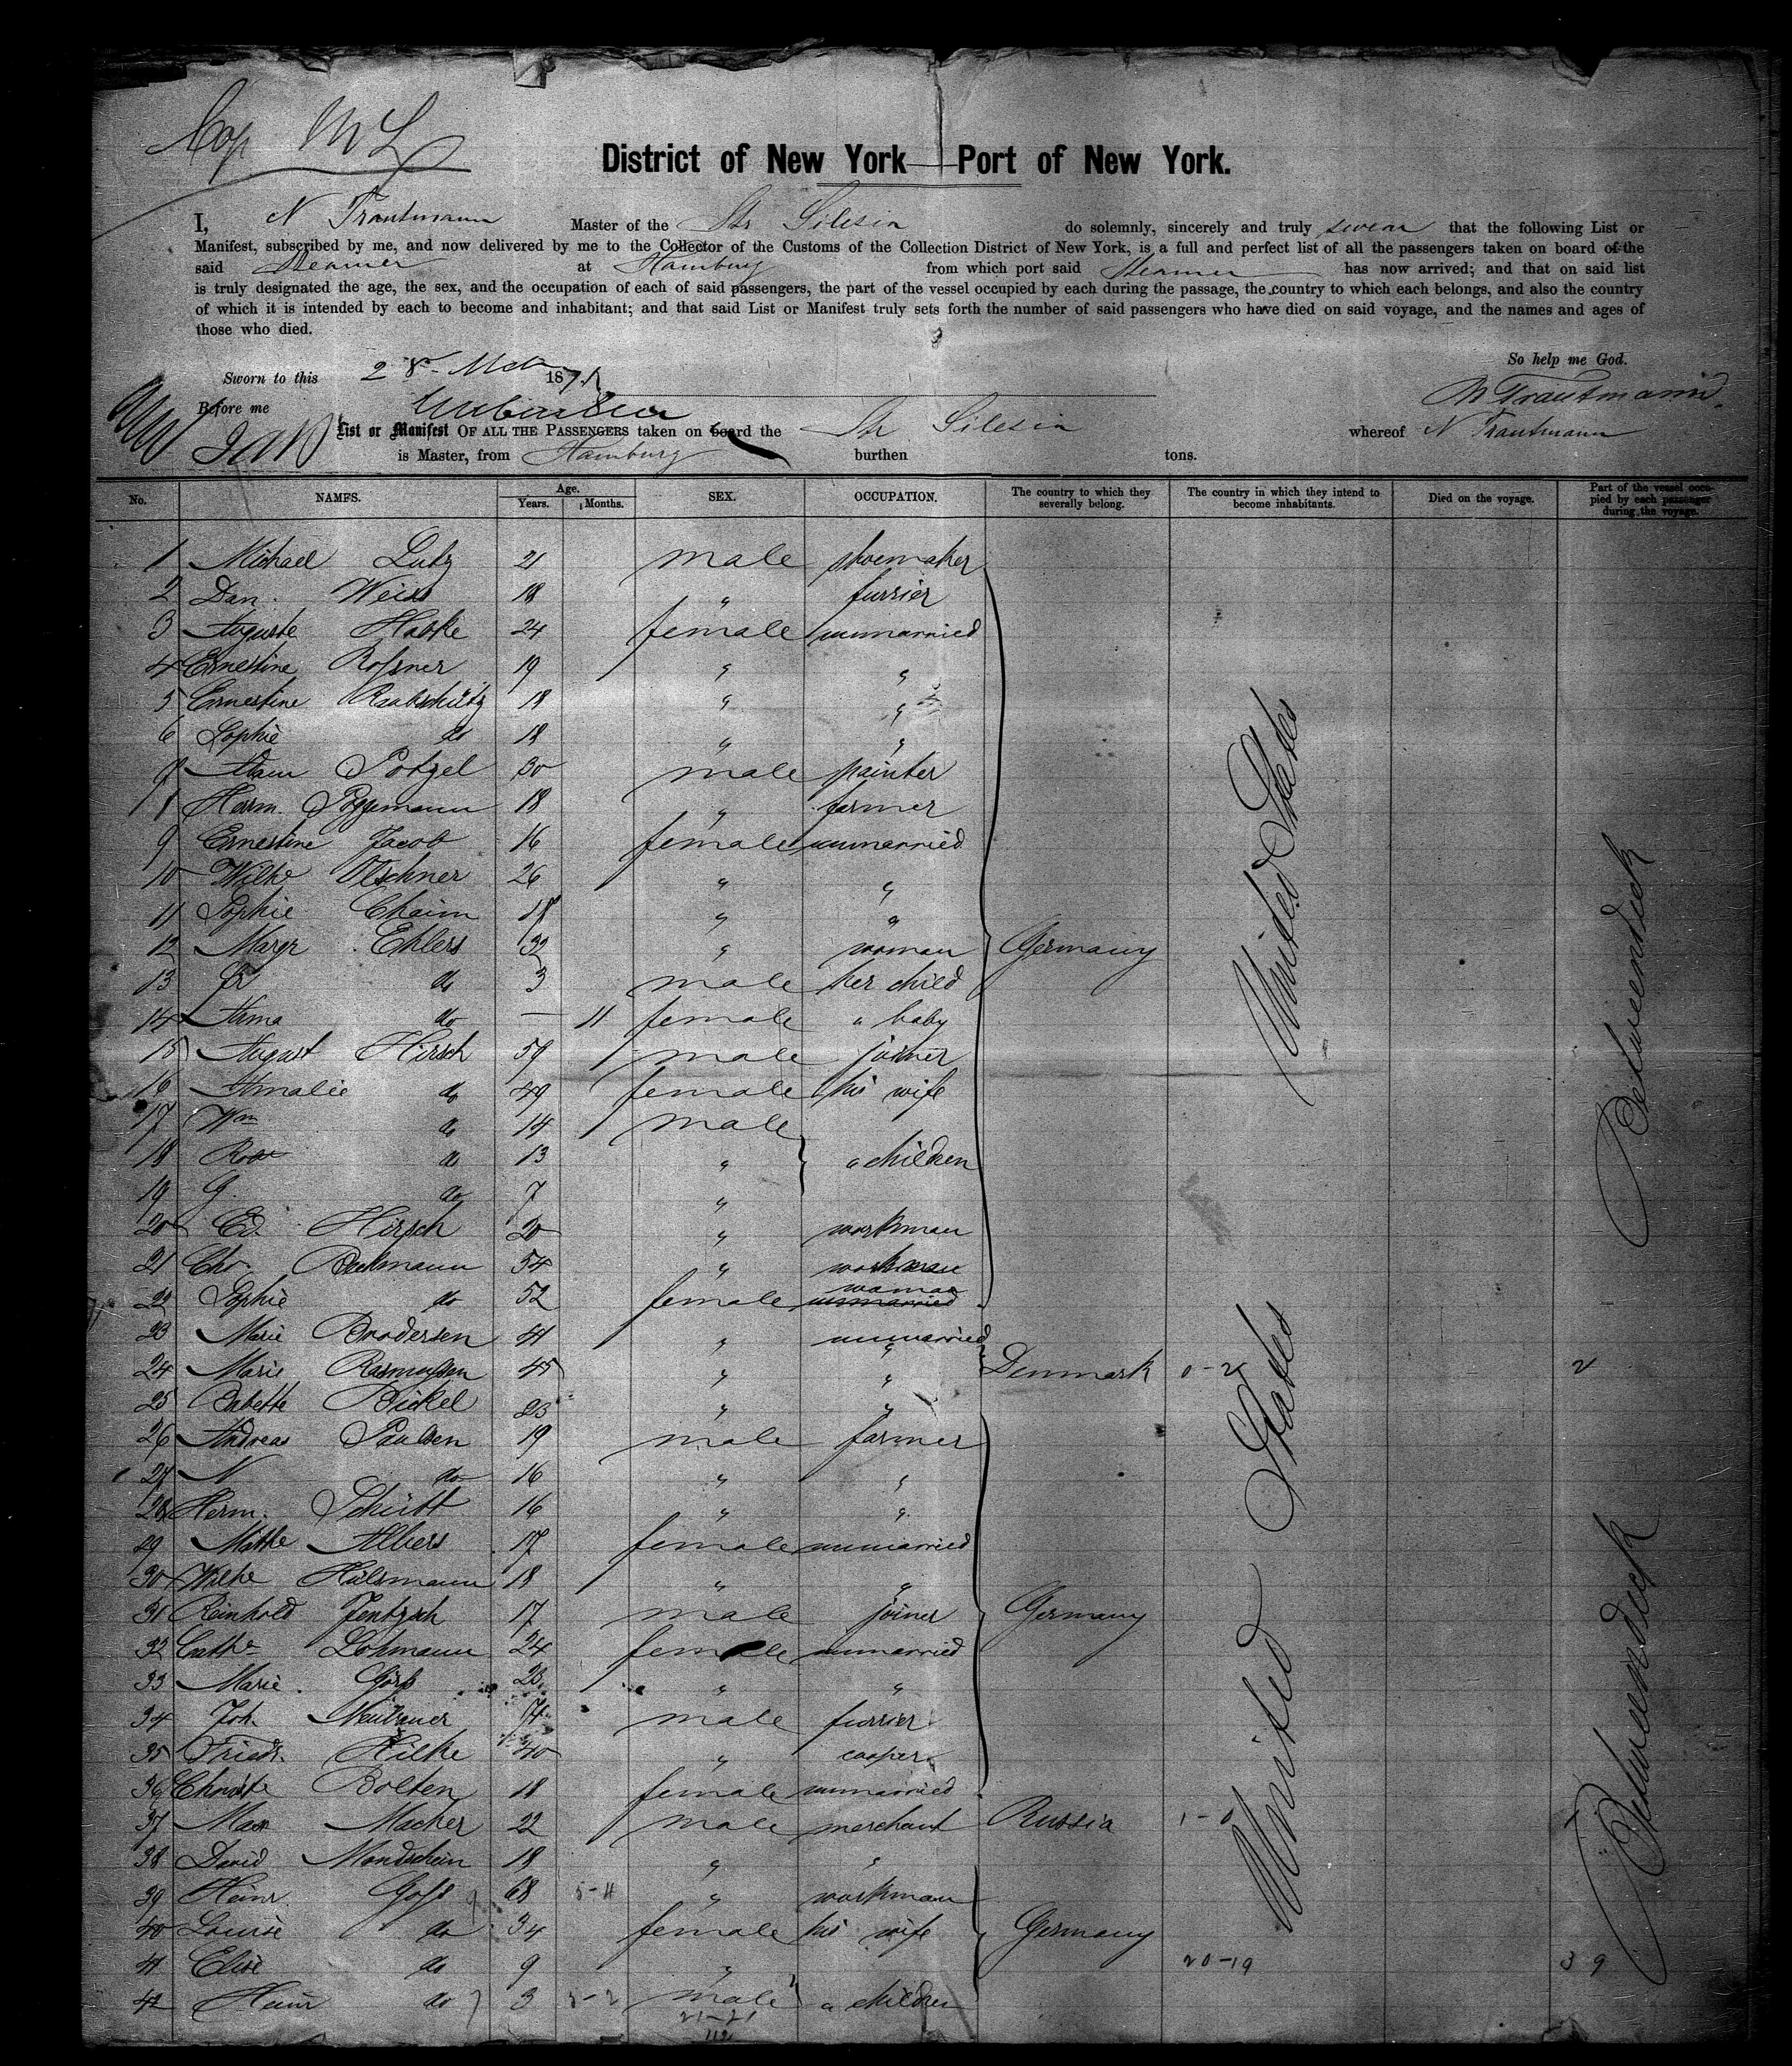 Cop ML
District of New York — Port of New York.
I, N Trautmann Master of the Str Silesia do solemnly, sincerely and truly swear that the following List or
Manifest, subscribed by me, and now delivered by me to the Collector of the Customs of the Collection District of New York, is a full and perfect list of all the passengers taken on board of the
said Steamer at Hamburg from which port said Steamer has now arrived; and that on said list
is truly designated the age, the sex, and the occupation of each of said passengers, the part of the vessel occupied by each during the passage, the country to which each belongs, and also the country
of which it is intended by each to become and inhabitant; and that said List or Manifest truly sets forth the number of said passengers who have died on said voyage, and the names and ages of
those who died.
So help me God.
Sworn to this 28 Mch 187
N Trautmann
Before me
List or Manifest OF ALL THE PASSENGERS taken on board the Str Silesia whereof N Trautmann
is Master, from Hamburg burthen tons.
No. NAMES. Age. Years. Months. SEX. OCCUPATION. The country to which they severally belong. The country in which they intend to become inhabitants. Died on the voyage. Part of the vessel occupied by each passenger during the voyage.
1 Michael Lutz 21 male shoemaker
2 Dan. Weiss 18 " furrier
3 Auguste Haske 24 female unmarried
4 Ernestine Roßner 19 " "
5 Ernestine Raabschütz 18 " "
6 Sophie do 18 " "
7 Adam Potzel 30 male painter
8 Herm. Poggemann 18 " farmer
9 Ernestine Jacob 16 female unmarried
10 Wilhe Olschner 26 " "
11 Sophie Chaim 18 " "
12 Margr Ehlers 32 " woman Germany United States Betweendeck
13 do 3 male her child
14 Anna do — 11 female " baby
15 August Hirsch 59 male joiner
16 Amalie do 49 female his wife
17 Wm do 14 male
18 Rob do 13 " " children
19 G. do 7 "
20 Ed. Hirsch 20 " workman
21 Chr. Beckmann 54 " workman
22 Sophie do 52 female woman unmarried
23 Marie Brodersen 41 " unmarried
24 Marie Rasmussen 45 " " Denmark 0-2 2
25 Babette Bickel 23 " "
26 Andreas Paulsen 19 male farmer
27 N do 16 " "
28 Herm. Schütt 16 " "
29 Mathe Albers 17 female unmarried
30 Wilhe Hülsmann 18 " "
31 Reinhold Jentzsch 17 male joiner Germany United States Betweendeck
32 Cathe Lohmann 24 female unmarried
33 Marie Görß 28 " "
34 Joh. Neubauer 17 male furrier
35 Friedr. Hilke 40 " cooper
36 Bolten 18 female unmarried
37 Max Macher 22 male merchant Russia 1-0 1
38 David Mondschein 18 " "
39 Heinr Goß 68 5-11 " workman
40 Louise do 34 female his wife Germany
41 Elise do 9 " 20-19 39
42 Heinr do 3 5-2 male " children
21-21
42